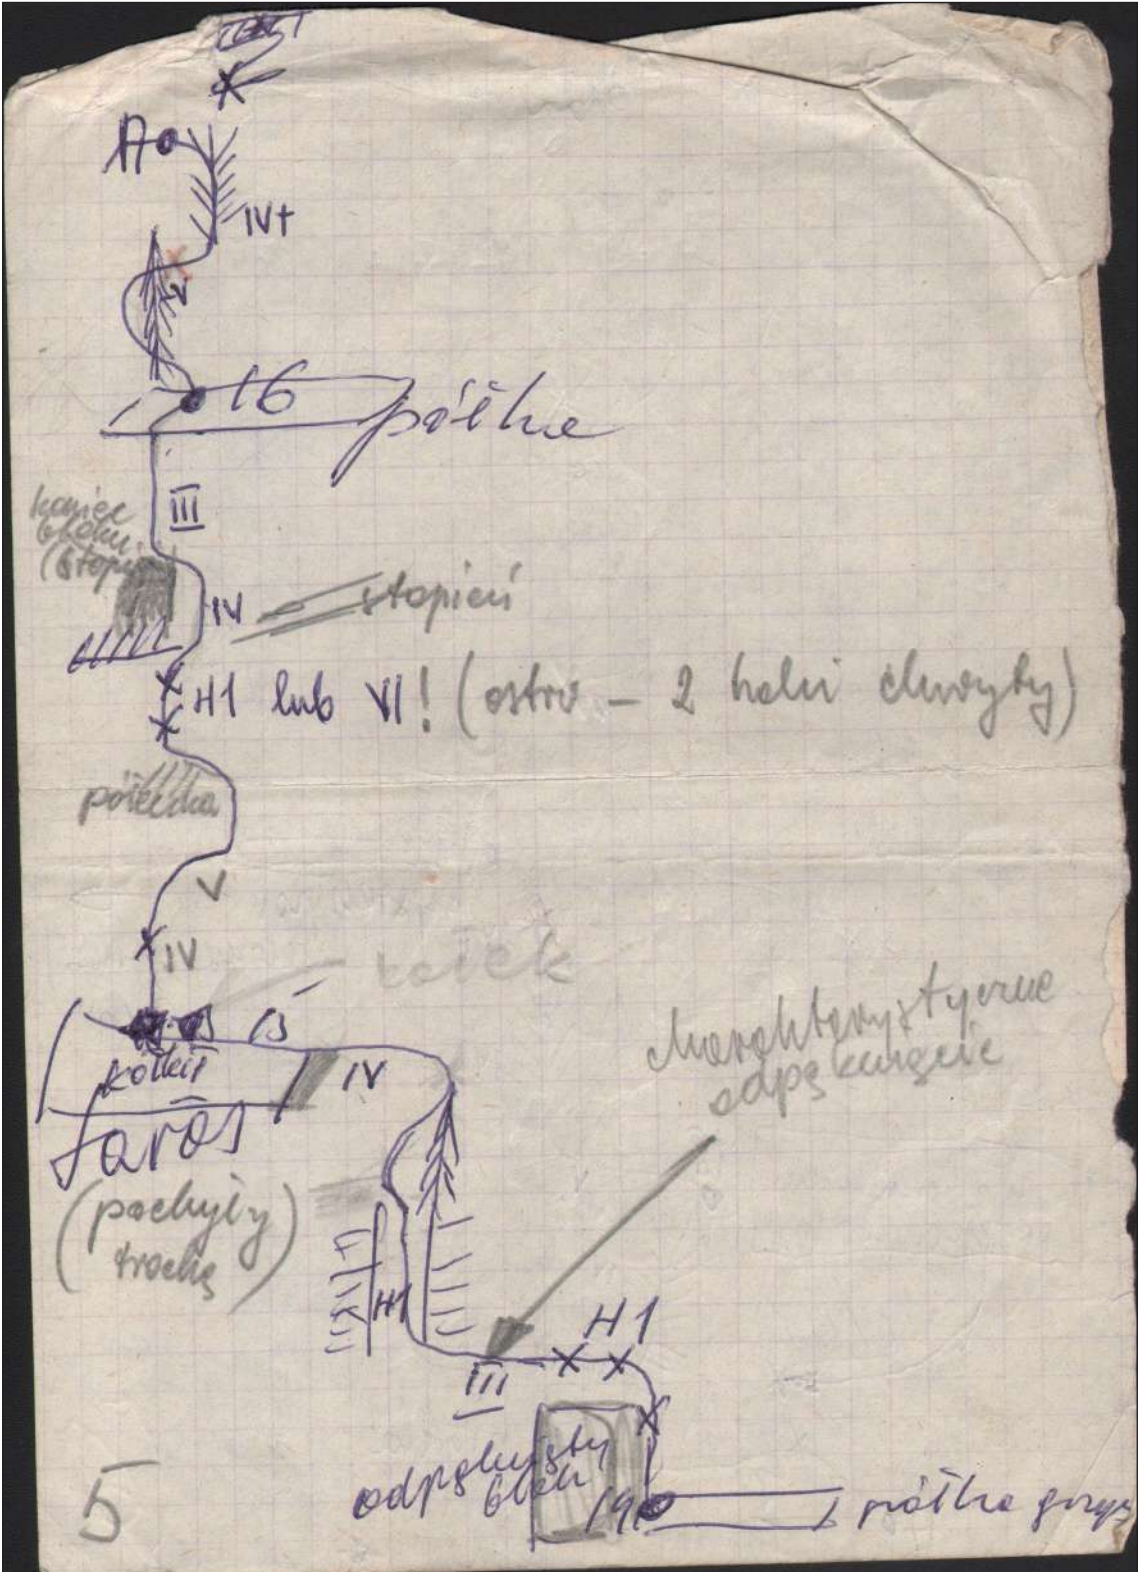 A
IV+
2
16 półka
III
koniec
bloku
(stopień
IV
stopień
H1 lub VI! (ostro - 2 haki chwyty)
półeczka
V
IV
kołek
15
kołki
IV
taras
(pochyły
trochę)
charakterystyczne
odpęknięcie
H1
H1
III
odpęknięty
blok
półka
5